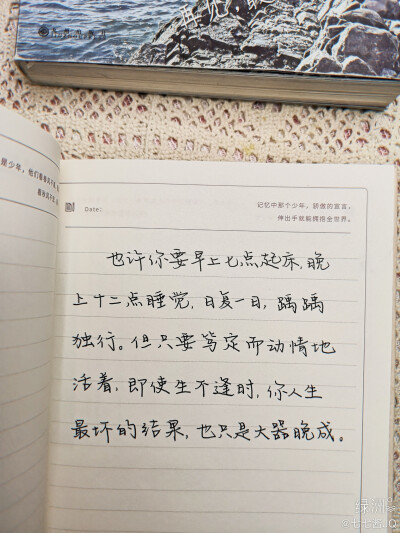 Date:
记忆中那个少年，骄傲的宣言，
伸出手就能拥抱全世界。
也许你要早上七点起床，晚
上十二点睡觉，日复一日，踽踽
独行。但只要笃定而动情地
活着，即使生不逢时，你人生
最坏的结果，也只是大器晚成。
绿洲